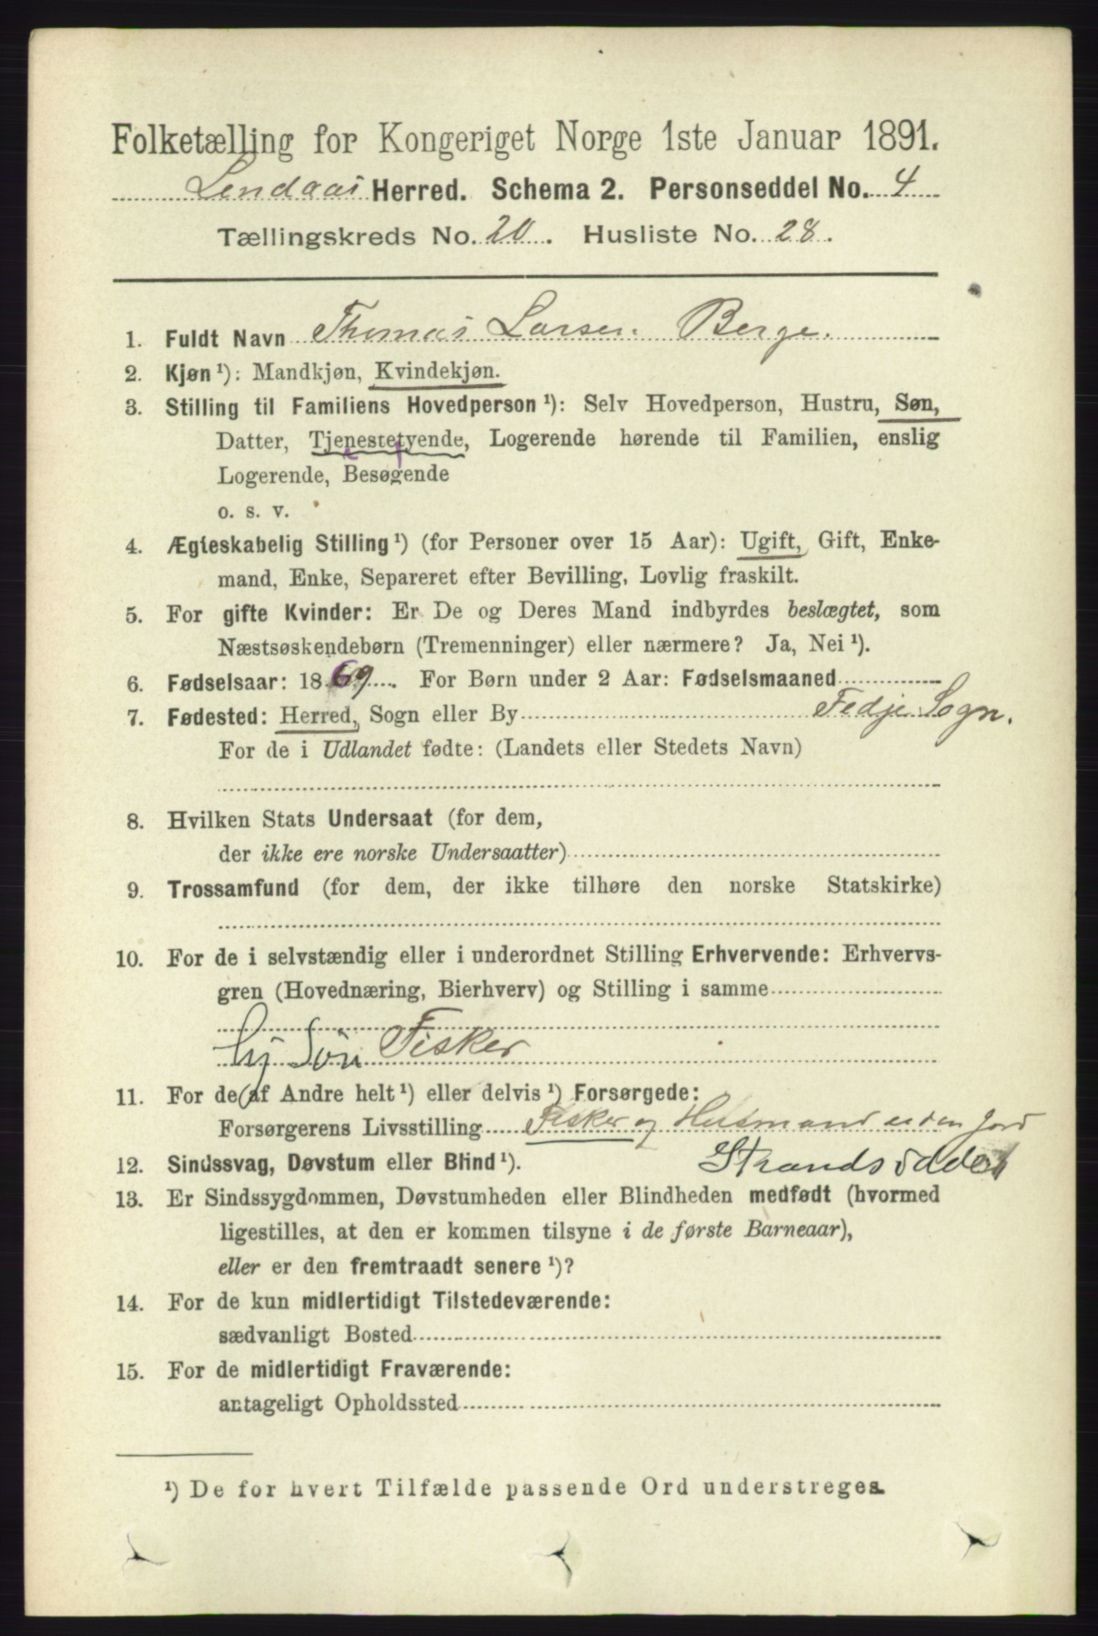 Folketælling for Kongeriget Norge 1ste Januar 1891.
Lindaas Herred. Schema 2. Personseddel No. 4
Tællingskreds No. 20. Husliste No. 28.
1. Fuldt Navn Thomas Larsen Berge.
2. Kjøn ¹): Mandkjøn, Kvindekjøn.
3. Stilling til Familiens Hovedperson ¹): Selv Hovedperson, Hustru, Søn,
Datter, Tjenestetyende, Logerende hørende til Familien, enslig
Logerende, Besøgende
o. s. v.
4. Ægteskabelig Stilling ¹) (for Personer over 15 Aar): Ugift, Gift, Enke-
mand, Enke, Separeret efter Bevilling, Lovlig fraskilt.
5. For gifte Kvinder: Er De og Deres Mand indbyrdes beslægtet, som
Næstsøskendebørn (Tremenninger) eller nærmere? Ja, Nei ¹).
6. Fødselsaar: 1869. For Børn under 2 Aar: Fødselsmaaned
7. Fødested: Herred, Sogn eller By Fedje Sogn.
For de i Udlandet fødte: (Landets eller Stedets Navn)
8. Hvilken Stats Undersaat (for dem,
der ikke ere norske Undersaatter)
9. Trossamfund (for dem, der ikke tilhøre den norske Statskirke)
10. For de i selvstændig eller i underordnet Stilling Erhvervende: Erhvervs-
gren (Hovednæring, Bierhverv) og Stilling i samme
Søn Fisker
11. For de (af Andre helt ¹) eller delvis ¹) Forsørgede:
Forsørgerens Livsstilling Fisker og Husmand uden Jord
12. Sindssvag, Døvstum eller Blind ¹).
13. Er Sindssygdommen, Døvstumheden eller Blindheden medfødt (hvormed
ligestilles, at den er kommen tilsyne i de første Barneaar),
eller er den fremtraadt senere ¹)?
14. For de kun midlertidigt Tilstedeværende:
sædvanligt Bosted
15. For de midlertidigt Fraværende:
antageligt Opholdssted
¹) De for hvert Tilfælde passende Ord understreges.